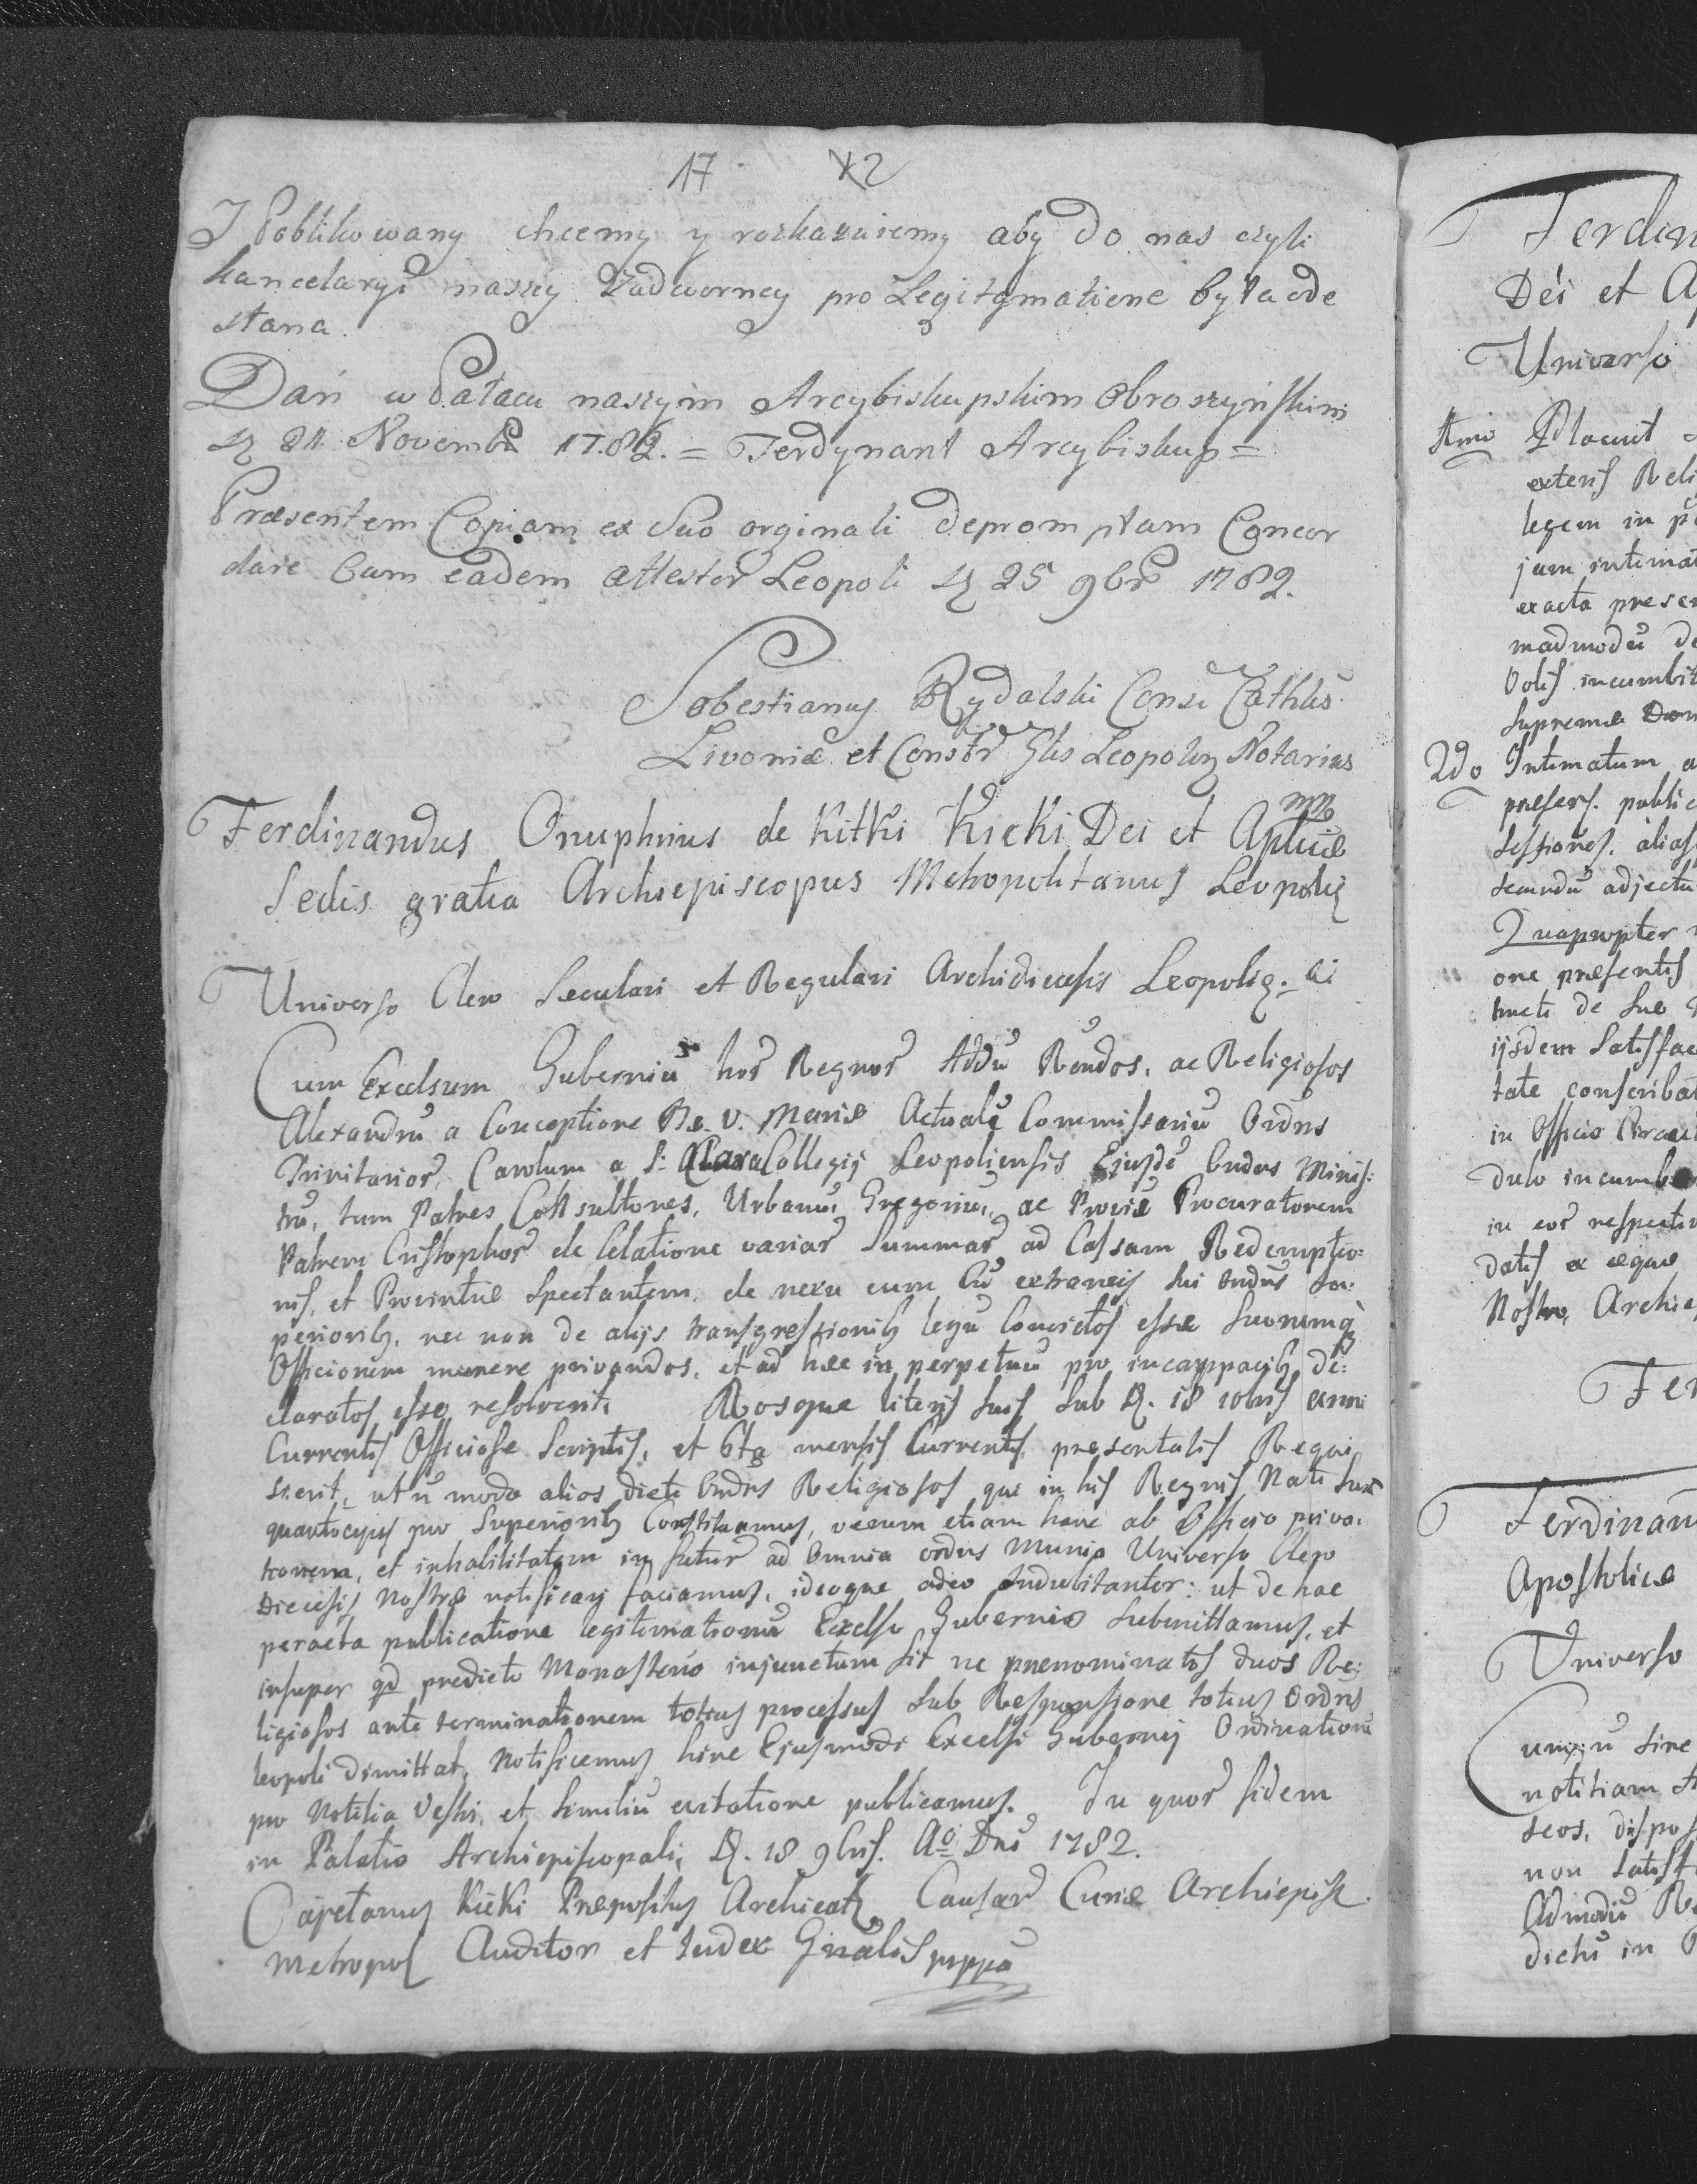 17 X2
I Poblikowany chcemy y roskazuiemy aby do nas czyli
kancelaryi naszey Zadworney pro Legitymatione była ode
słana.
Dań w Pałacu naszym Arcybiskupskim Obroszyńskim
D 21 Novembr 1782. = Ferdynant Arcybiskup =
Præsentem Copiam ex Suo orginali depromptam Concor
dare Cum eadem attestor Leopoli D 25 9br 1782.
Sobestianus Rydalski Cathlis
Livoniæ et Leopoln Notarius
mp
Ferdinandus Onuphrius de Kitki Kicki Dei et Aplicæ
Sedis gratia Archiepiscopus Metropolitanus Leopolis
Universo Clero Seculari et Regulari Archidiecesis Leopolis.
Cum Excelsum Guberniū hor Regnor Addū Rendos, ac Religiosos
Alexandrū a Conceptione Be. V. Mariæ Actualē Commissariū Ordns
Trinitarior, Carolum a S: Clara Collegij Leopoliensis Ejusdē Ordns Minis:
trū, tum Patres Consultores, Urbanū, Gregoriū, ac Proviæ Procuratorem
Patrem Cristophor de Celatione variar Summar ad Cassam Redemptio:
nis, et Provintiæ Spectantem, de nexu cum Cū extraneis sui Ordns Su:
periorib, nec non de alijs transgressionib legū Convictos esse Suorumq
Officiorum munere privandos, et ad hæc in perpetuū pro incappacib de:
claratos esse resolverit Nosque literis suis Sub D. 18 10bris anni
Currentis Officiose Scriptis, et 6ta mensis Currentis presentatis Requi
sierit, ut ū modo alios dicti Ordns Religiosos qui in his Regnis Nati sunt
quantocyus pro Superiorib Constituamus, verum etiam hanc ab Officio priva:
tionem, et inhabilitatem in futur ad Omnia ordns Munia Universo Clero
Diecesis Nostræ notificari faciamus, ideoque adeo Indubitanter: ut de hac
peracta publicatione legitimationū Excelso Gubernio Submittamus, et
insuper qd predicto Monasterio injunctum sit ne prenominatos duos Re:
ligiosos ante terminationem totius processus sub Responsione totius Ordns
leopoli dimittat, Notificemus hinc Ejusmodi Excelsi Gubernij Ordinationē
pro Notitia Vestri, et Similiū evitatione publicamus. In quor fidem
in Palatio Archiepiscopali, D. 18 9bris. Ao Dni 1782.
Cajetanus Kicki Prepositus Archicath, Causar Curiæ Archiepisc.
Metropol Auditor et Iudex Gnalis mppa
Ferdin
Dei et A
Universo
1mo Placuit
exteris Reli
legem in
jam intimat
exacta prese
madmodū de
Vobis incumbit
Supremæ
2do Intimatum a
presers. public
sessiones. alias
secundū adjectu
Quapropter
one presentis
tructi de suo
ijsdem satisfac
tate conscribat
in Officio Circul
dulo incumb
in eor respectiv
datis ex eque
Nostro, Archie
Fer
Ferdinan
Apostolicæ
Universo
Cumū sine
notitiam
seos, dispos
non satisf
Admodū Re
dictū in